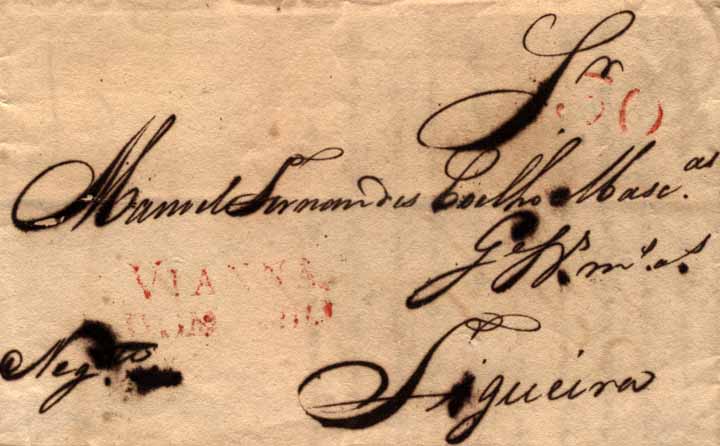 Sr.
50
Manuel Fernandes Coelho Masc.as
Ge
VIANNA.
Neg.to
Figueira